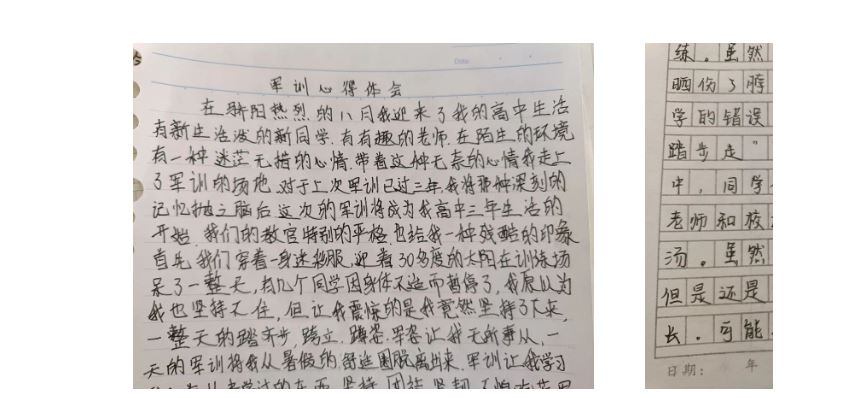 Date
军训心得体会
在骄阳热烈的八月我迎来了我的高中生活
有新生活泼的新同学.有有趣的老师.在陌生的环境
有一种迷茫无措的心情.带着这种无奈的心情我走上
了军训的场地.对于上次军训已过三年,我将那种深刻的
记忆抛之脑后 这次的军训将成为我高中三年生活的
开始.我们的教官特别的严格.也给我一种残酷的印象
首先.我们穿着一身迷彩服,迎着30多度的太阳在训练场
呆了一整天,有几个同学因身体不适而暂停了,我原以为
我也坚持不住,但让我震惊的是我竟然坚持了下来,
一整天的踏齐步,跨立.蹲姿.军姿让我无所事从,一
天的军训将我从暑假的舒适圈脱离出来.军训让我学习
练。虽然
晒伤了胳
学的错误
踏步走"
中,同学
老师和校
汤。虽然
但是还是
长。可能
日期: 年